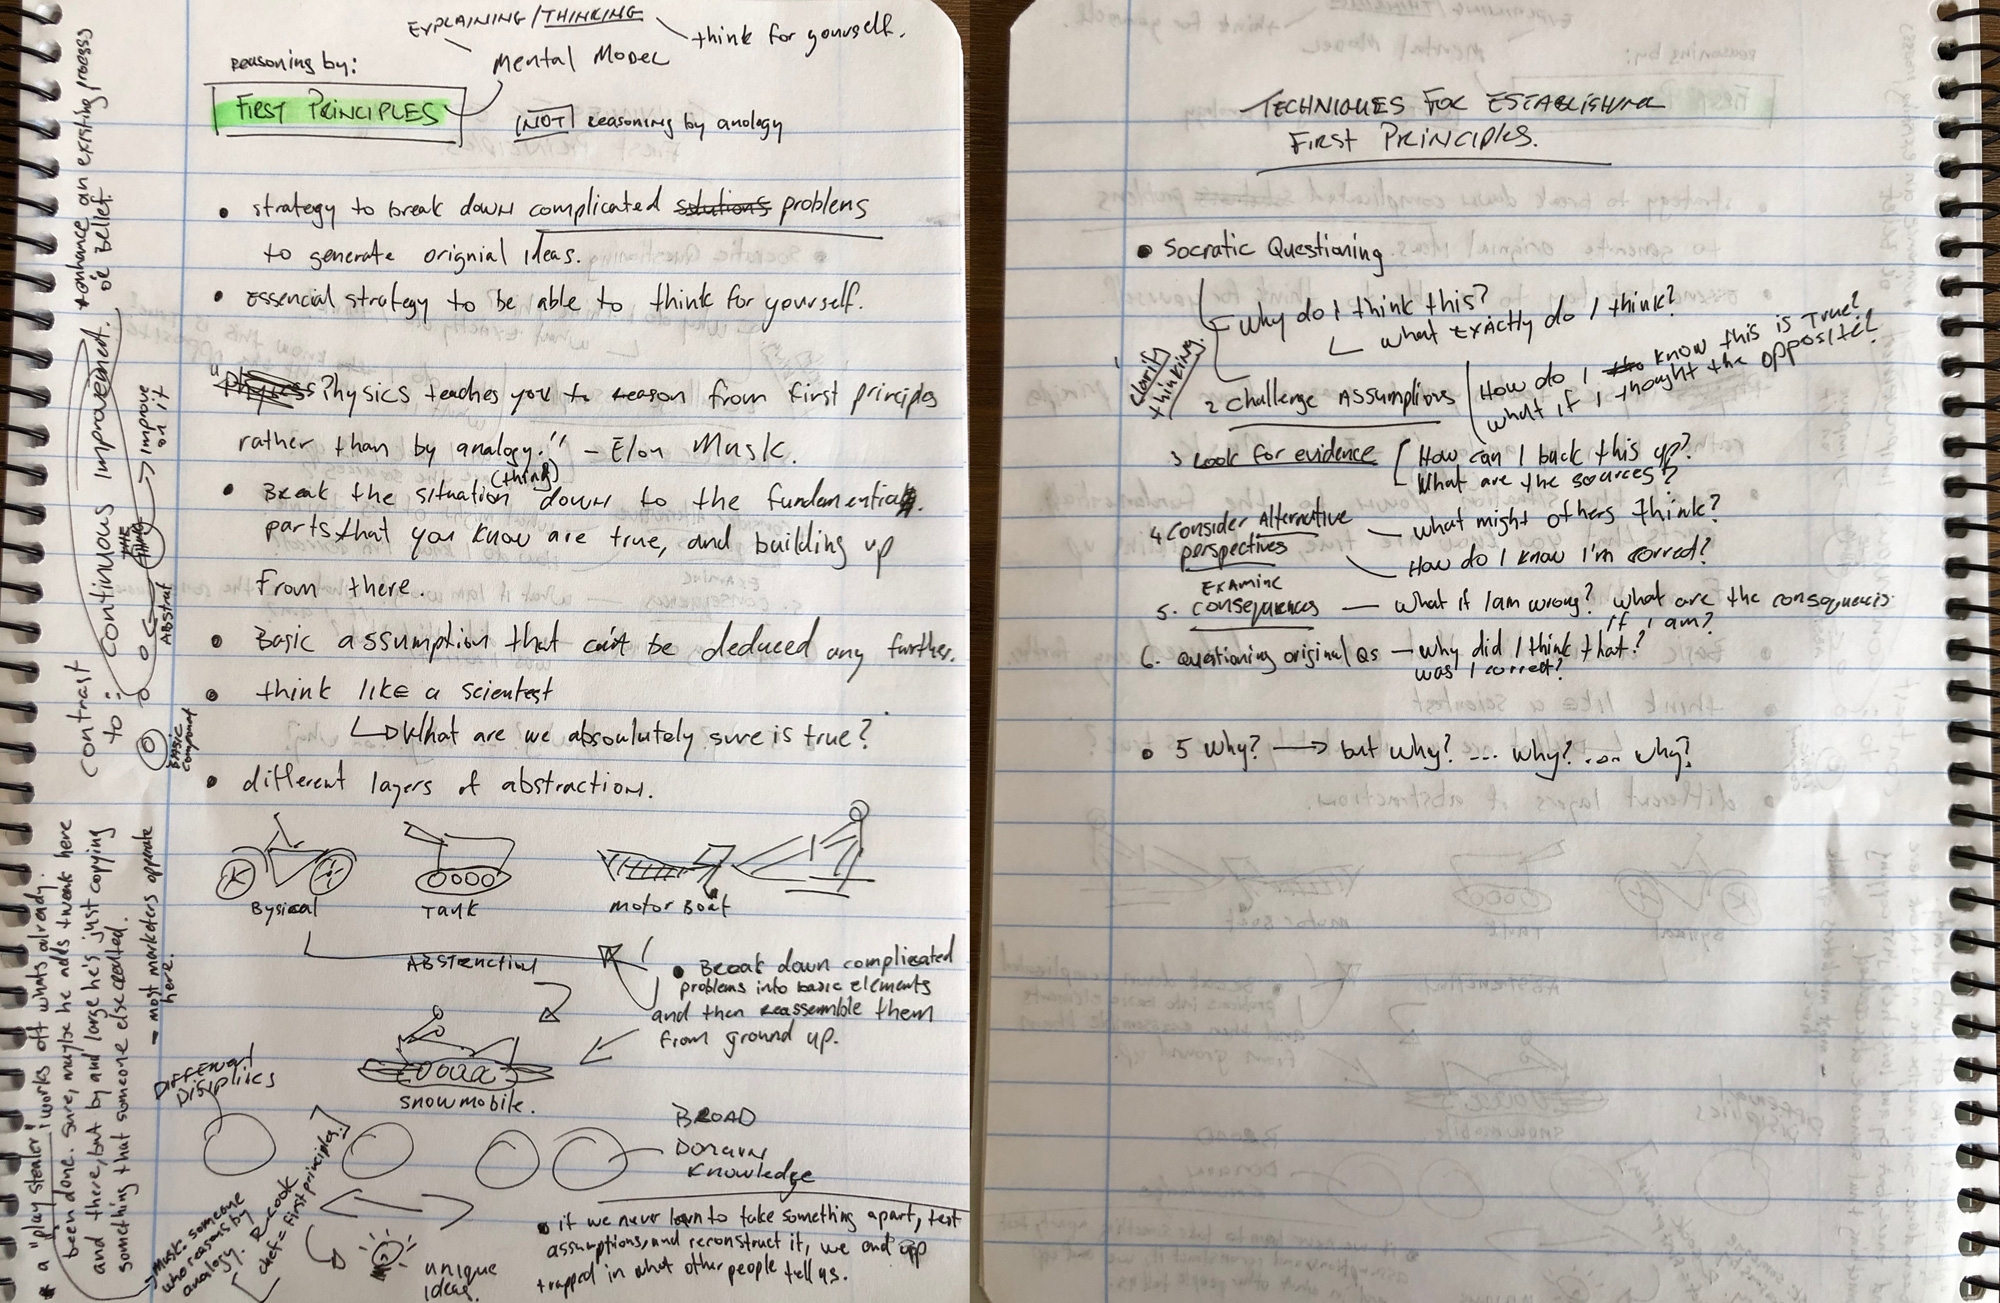 EXPLAINING/THINKING
think for yourself.
Mental Model
Reasoning by:
FIRST PRINCIPLES
(NOT) Reasoning by anology
• strategy to break down complicated solutions problems
to generate orignial ideas.
• Essencial strategy to be able to think for yourself.
"Physics Physics teaches you to reason from first principles
rather than by analogy." – Elon Musk.
(thing)
• Break the situation down to the fundamential
parts that you know are true, and building up
from there.
• Basic assumption that can't be deduced any further.
• think like a scientest
What are we absoulutely sure is true?
• different layers of abstraction.
Bysical
Tank
Motor Boat
ABSTRACTION
• Break down complicated
problems into basic elements
and then reassemble them
from ground up.
snowmobile.
Different
Disiplines
BROAD
Domain
Knowledge
• if we never learn to take something apart, test
assumptions, and reconstruct it, we end up
trapped in what other people tell us.
unique
ideas.
contrast
to: continuous improvement.
*enhance an existing process
or belief
BASIC
component
ABSTRAT
THE
THING
improve
on it
* a "play stealer" works off whats already
been done. Sure, maybe he adds tweak here
and there, but by and large he's just copying
something that someone else created.
– most marketers operate
here.
Musk: someone
who reasons by
analogy. R. cook
chef = first principles
TECHNIQUES FOR ESTABLISHING
FIRST PRINCIPLES.
• Socratic Questioning
clarify
thinking
Why do I think this?
what exactly do I think?
2 Challenge Assumptions
How do I know this is true?
what if I thought the opposite?
3 Look for evidence
How can I back this up?
What are the sources?
4 Consider Alternative
perspectives
what might others think?
How do I know I'm correct?
5. Examine
consequences — what if I am wrong? what are the consequences
if I am?
6. Questioning original Qs — why did I think that?
was I correct?
• 5 why? → but why? ... why? ... why?